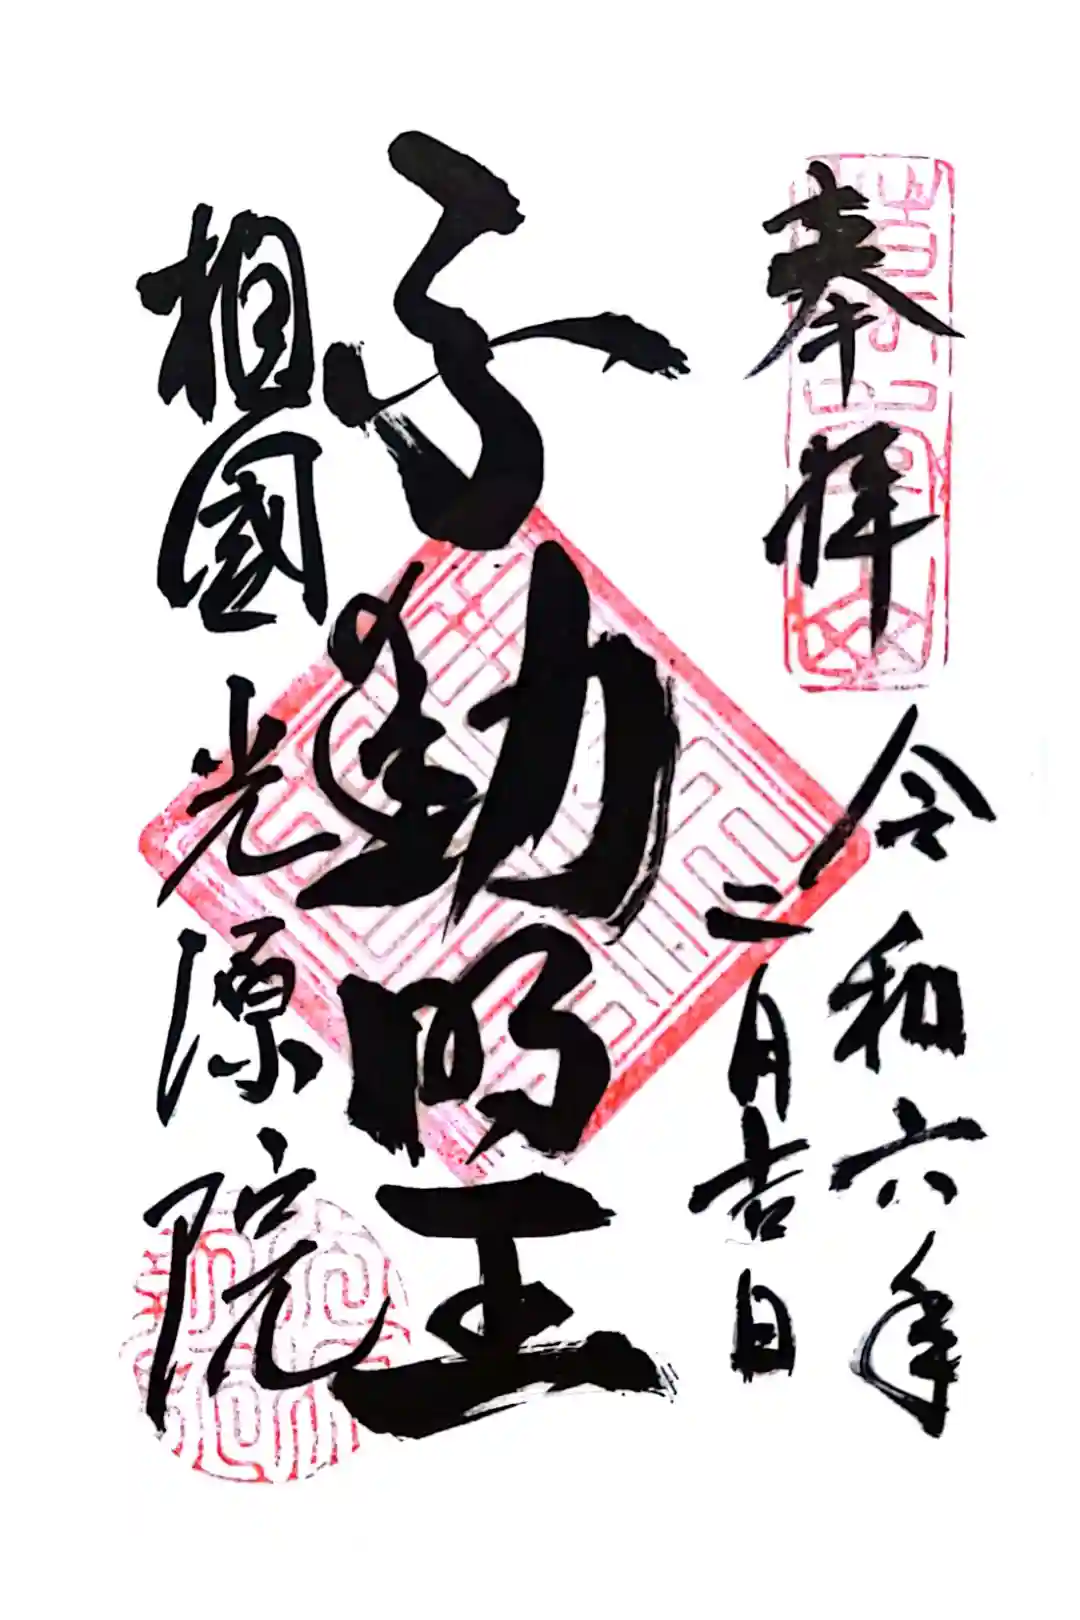 奉拝
令和六年
二月吉日
不動明王
相國光源院